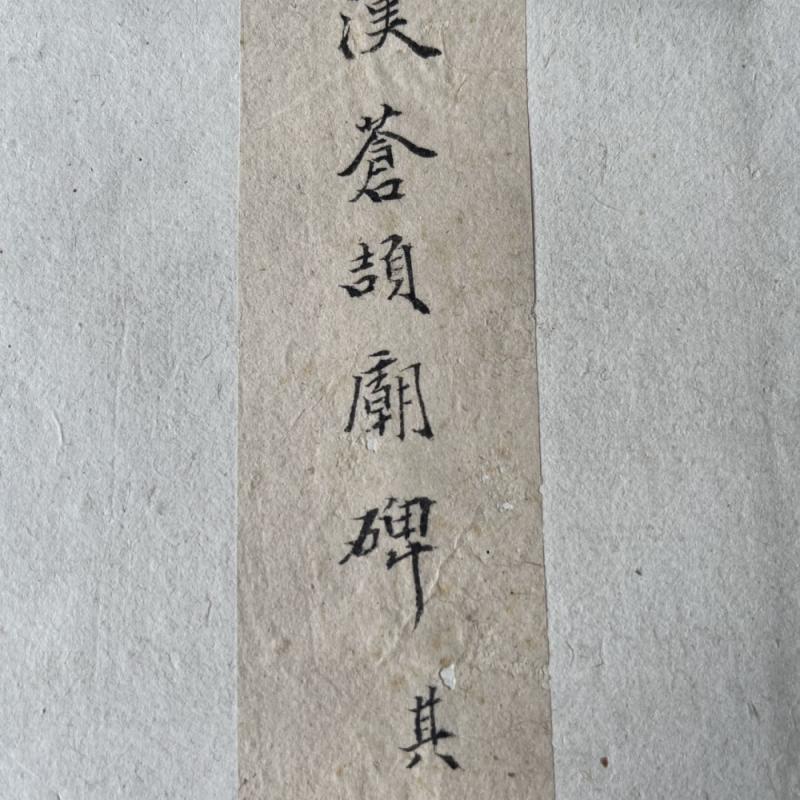 漢蒼頡廟碑其